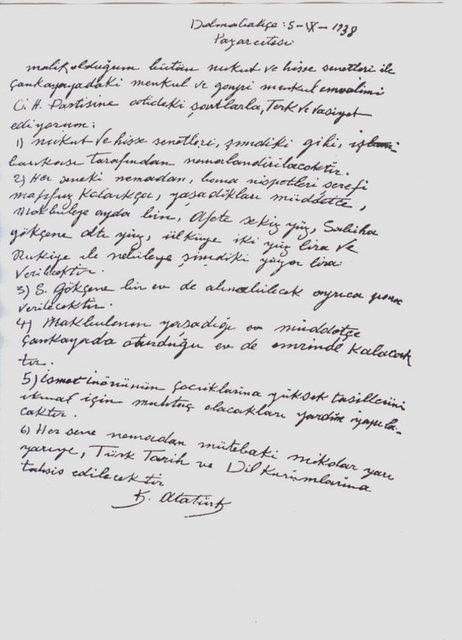 Dolmabahçe: 5-IX-1938
Pazartesi
malik olduğum bütün nukut ve hisse senetleri ile
Çankayadaki menkul ve gayri menkul emvalimi
C. H. Partisine atideki şartlarla, Terk ve vasiyet
ediyorum:
1) nukut ve hisse senetleri, şimdiki gibi, iş
bankası tarafından nemalandırılacaktır.
2) Her seneki nemadan, bana nispetleri şerefi
mahfuz kaldıkça, yaşadıkları müddetçe,
Makbuleye ayda bin, Afete sekiz yüz, Sabiha
gökçene altı yüz, ülküye iki yüz lira ve
Rukiye ile nebileye şimdiki yüzer lira
verilecektir.
3) S. Gökçene bir ev de alınabilecek ayrıca para
verilecektir.
4) Makbulenin yaşadığı müddetçe
Çankayada oturduğu ev de emrinde kalacak
tır.
5) ismet inönünün çocuklarına yüksek tasillerini
ikmal için muhtaç olacakları yardım yapıla-
caktır.
6) Her sene nemadan mütebaki miktar yarı
yarıya, Türk Tarih ve Dil Kurumlarına
tahsis edilecektir.
K. Atatürk